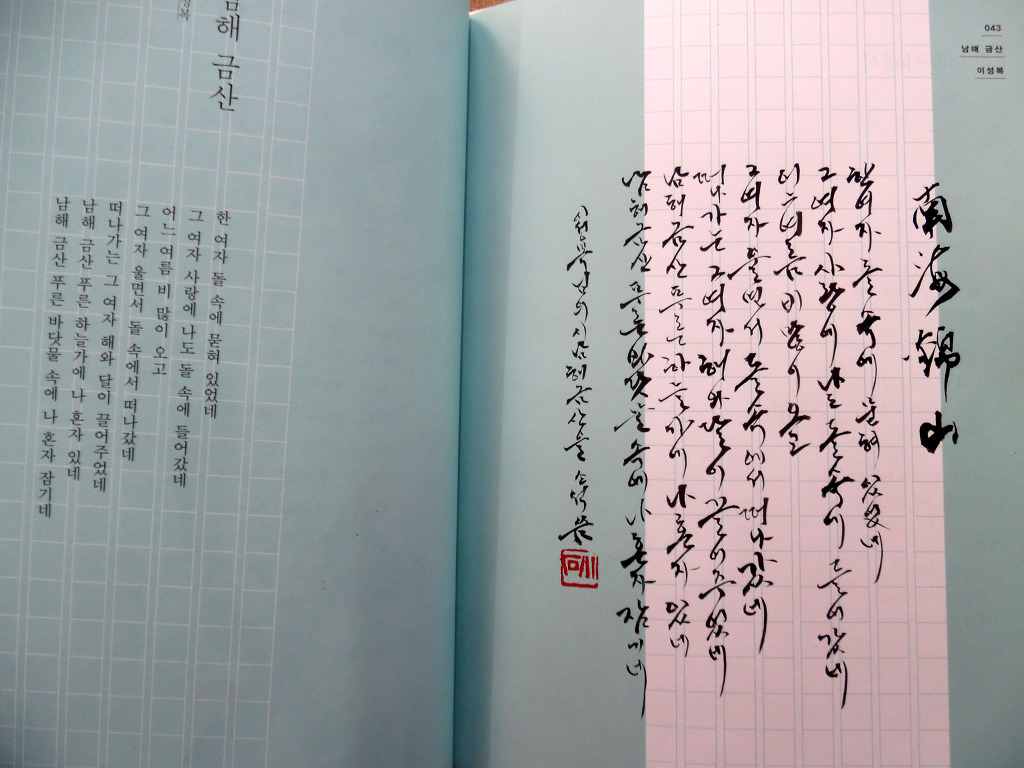 남해 금산
성복
한 여자 돌 속에 묻혀 있었네
그 여자 사랑에 나도 돌 속에 들어갔네
어느 여름 비 많이 오고
그 여자 울면서 돌 속에서 떠나갔네
떠나가는 그 여자 해와 달이 끌어주었네
남해 금산 푸른 하늘가에 나 혼자 있네
남해 금산 푸른 바닷물 속에 나 혼자 잠기네
043
남해 금산
이성복
南海錦山
한 여자 돌 속에 묻혀 있었네
그 여자 사랑에 나도 돌 속에 들어갔네
어느 여름 비 많이 오고
그 여자 울면서 돌 속에서 떠나갔네
떠나가는 그 여자 해와 달이 끌어주었네
남해 금산 푸른 하늘가에 나 혼자 있네
남해 금산 푸른 바닷물 속에 나 혼자 잠기네
이성복님의 시 남해금산을